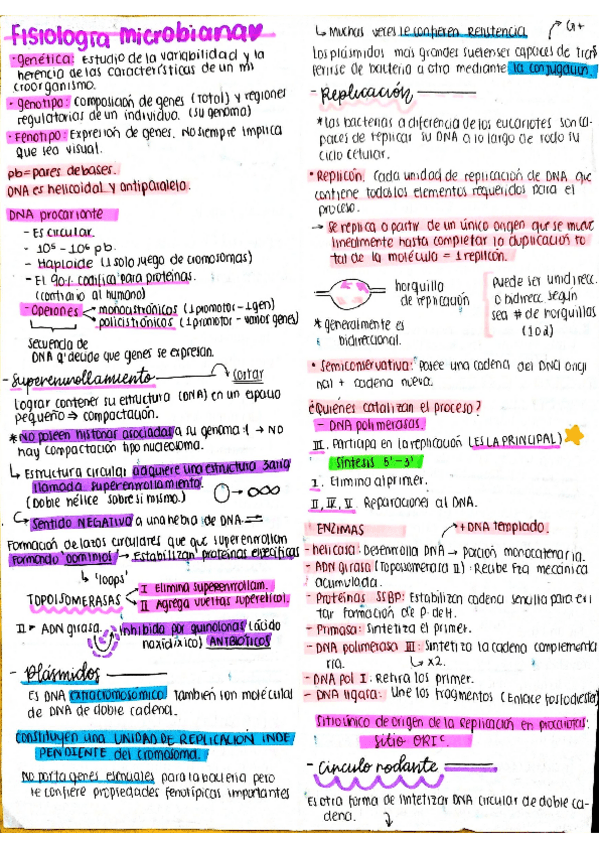 Fisiología microbiana
· Genética: Estudio de la variabilidad y la
herencia de las características de un mi
croorganismo.
· Genotipo: Composición de genes (total) y regiones
regulatorias de un individuo. (su genoma)
· Fenotipo: Expresión de genes. No siempre implica
que sea visual.
pb = pares de bases.
DNA es helicoidal y antiparalelo.
DNA procarionte
- Es circular.
- Haploide (1 solo juego de cromosomas)
- El 90% codifica para proteínas.
(contrario al humano)
- Operones
monocistrónicos (1 promotor - 1 gen)
policistrónicos (1 promotor - varios genes)
secuencia de
DNA q' decide que genes se expresan.
- Superenrollamiento
cortar
lograr contener su estructura (DNA) en un espacio
pequeño ⇒ compactación.
* No poseen histonas asociadas a su genoma → NO
hay compactación tipo nucleosoma.
↳ Estructura circular adquiere una estructura 3aria
llamada superenrollamiento.
(Doble hélice sobre si mismo.)
↳ Sentido NEGATIVO a una hebra de DNA.
Formación de lazos circulares que que superenrollan
Formando 'dominios' → Estabilizan proteínas específicas
↳ 'loops'
TOPOISOMERASAS
I Elimina superenrollam.
II Agrega vueltas superhelicol.
II → ADN girasa.
Inhibida por quinolonas (ácido
nalidíxico) ANTIBIÓTICOS
- Plásmidos
Es DNA extracromosómico. También son moléculas
de DNA de doble cadena.
Constituyen una UNIDAD DE REPLICACIÓN INDE
PENDIENTE del cromosoma.
No porta genes esenciales para la bacteria pero
le confiere propiedades fenotípicas importantes
↳ Muchas veces le confieren Resistencia
G+
Los plásmidos más grandes suelen ser capaces de trans
ferirse de bacteria a otra mediante la conjugación.
- Replicación
* Las bacterias a diferencia de los eucariotes son ca-
paces de replicar su DNA a lo largo de todo su
ciclo celular.
· Replicón: Cada unidad de replicación de DNA que
contiene todos los elementos requeridos para el
proceso.
→ Se replica a partir de un único origen que se mueve
linealmente hasta completar la duplicación to
tal de la molécula = 1 replicón.
horquilla
de replicación
Puede ser unidirecc.
o bidirecc según
sea # de horquillas
(1 o 2)
* generalmente es
bidireccional.
· Semiconservativa: Posee una cadena del DNA origi
nal + cadena nueva.
¿Quiénes catalizan el proceso?
- DNA polimerasas.
III. Participa en la replicación (ES LA PRINCIPAL)
Síntesis 5'-3'
I. Elimina al primer.
II, IV, V Reparaciones al DNA.
ENZIMAS
+ DNA templado.
- helicasa: Desenrolla DNA → porción monocatenaria.
- ADN girasa (Topoisomerasa II): Recibe Fza mecánica
acumulada.
- Proteínas SSBP: Estabilizan cadena sencilla para evi
tar formación de P. de H.
- Primasa: Sintetiza el primer.
- DNA polimerasa III: Sintetiza la cadena complementa
ria.
↳ x2.
- DNA pol I: Retira los primer.
- DNA ligasa: Une los fragmentos (Enlace fosfodiester)
Sitio único de origen de la replicación en procariotas:
Sitio ORIC.
- Círculo rodante
Es otra forma de sintetizar DNA circular de doble ca-
dena.